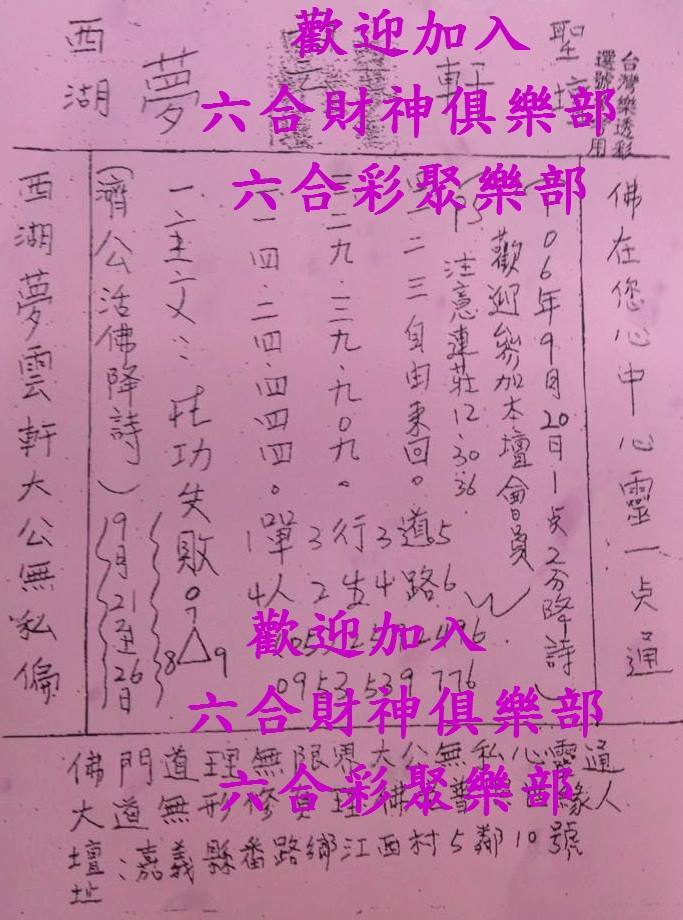 歡迎加入
六合財神俱樂部
六合彩聚樂部
西湖
夢
軒
聖壇
台灣樂透彩
選號 用
佛在您心中心靈一点通
106年9月20日1点2分降詩
歡迎參加本壇會員
注意連莊12.30.36
二三自由來回。
二九.三九.九0九。
一四.二四.四四四。
1單3行3道5
4人2生4路6
0953539776
一主六:
功失敗。
7
8△9
(濟公活佛降詩)
9月21至26日
西湖夢雲軒大公無私偏
歡迎加入
六合財神俱樂部
六合彩聚樂部
佛門道理無限界大公無私心靈通
大道無形修 理佛普 西緣人
壇址:嘉義縣番路鄉江西村5鄰10號